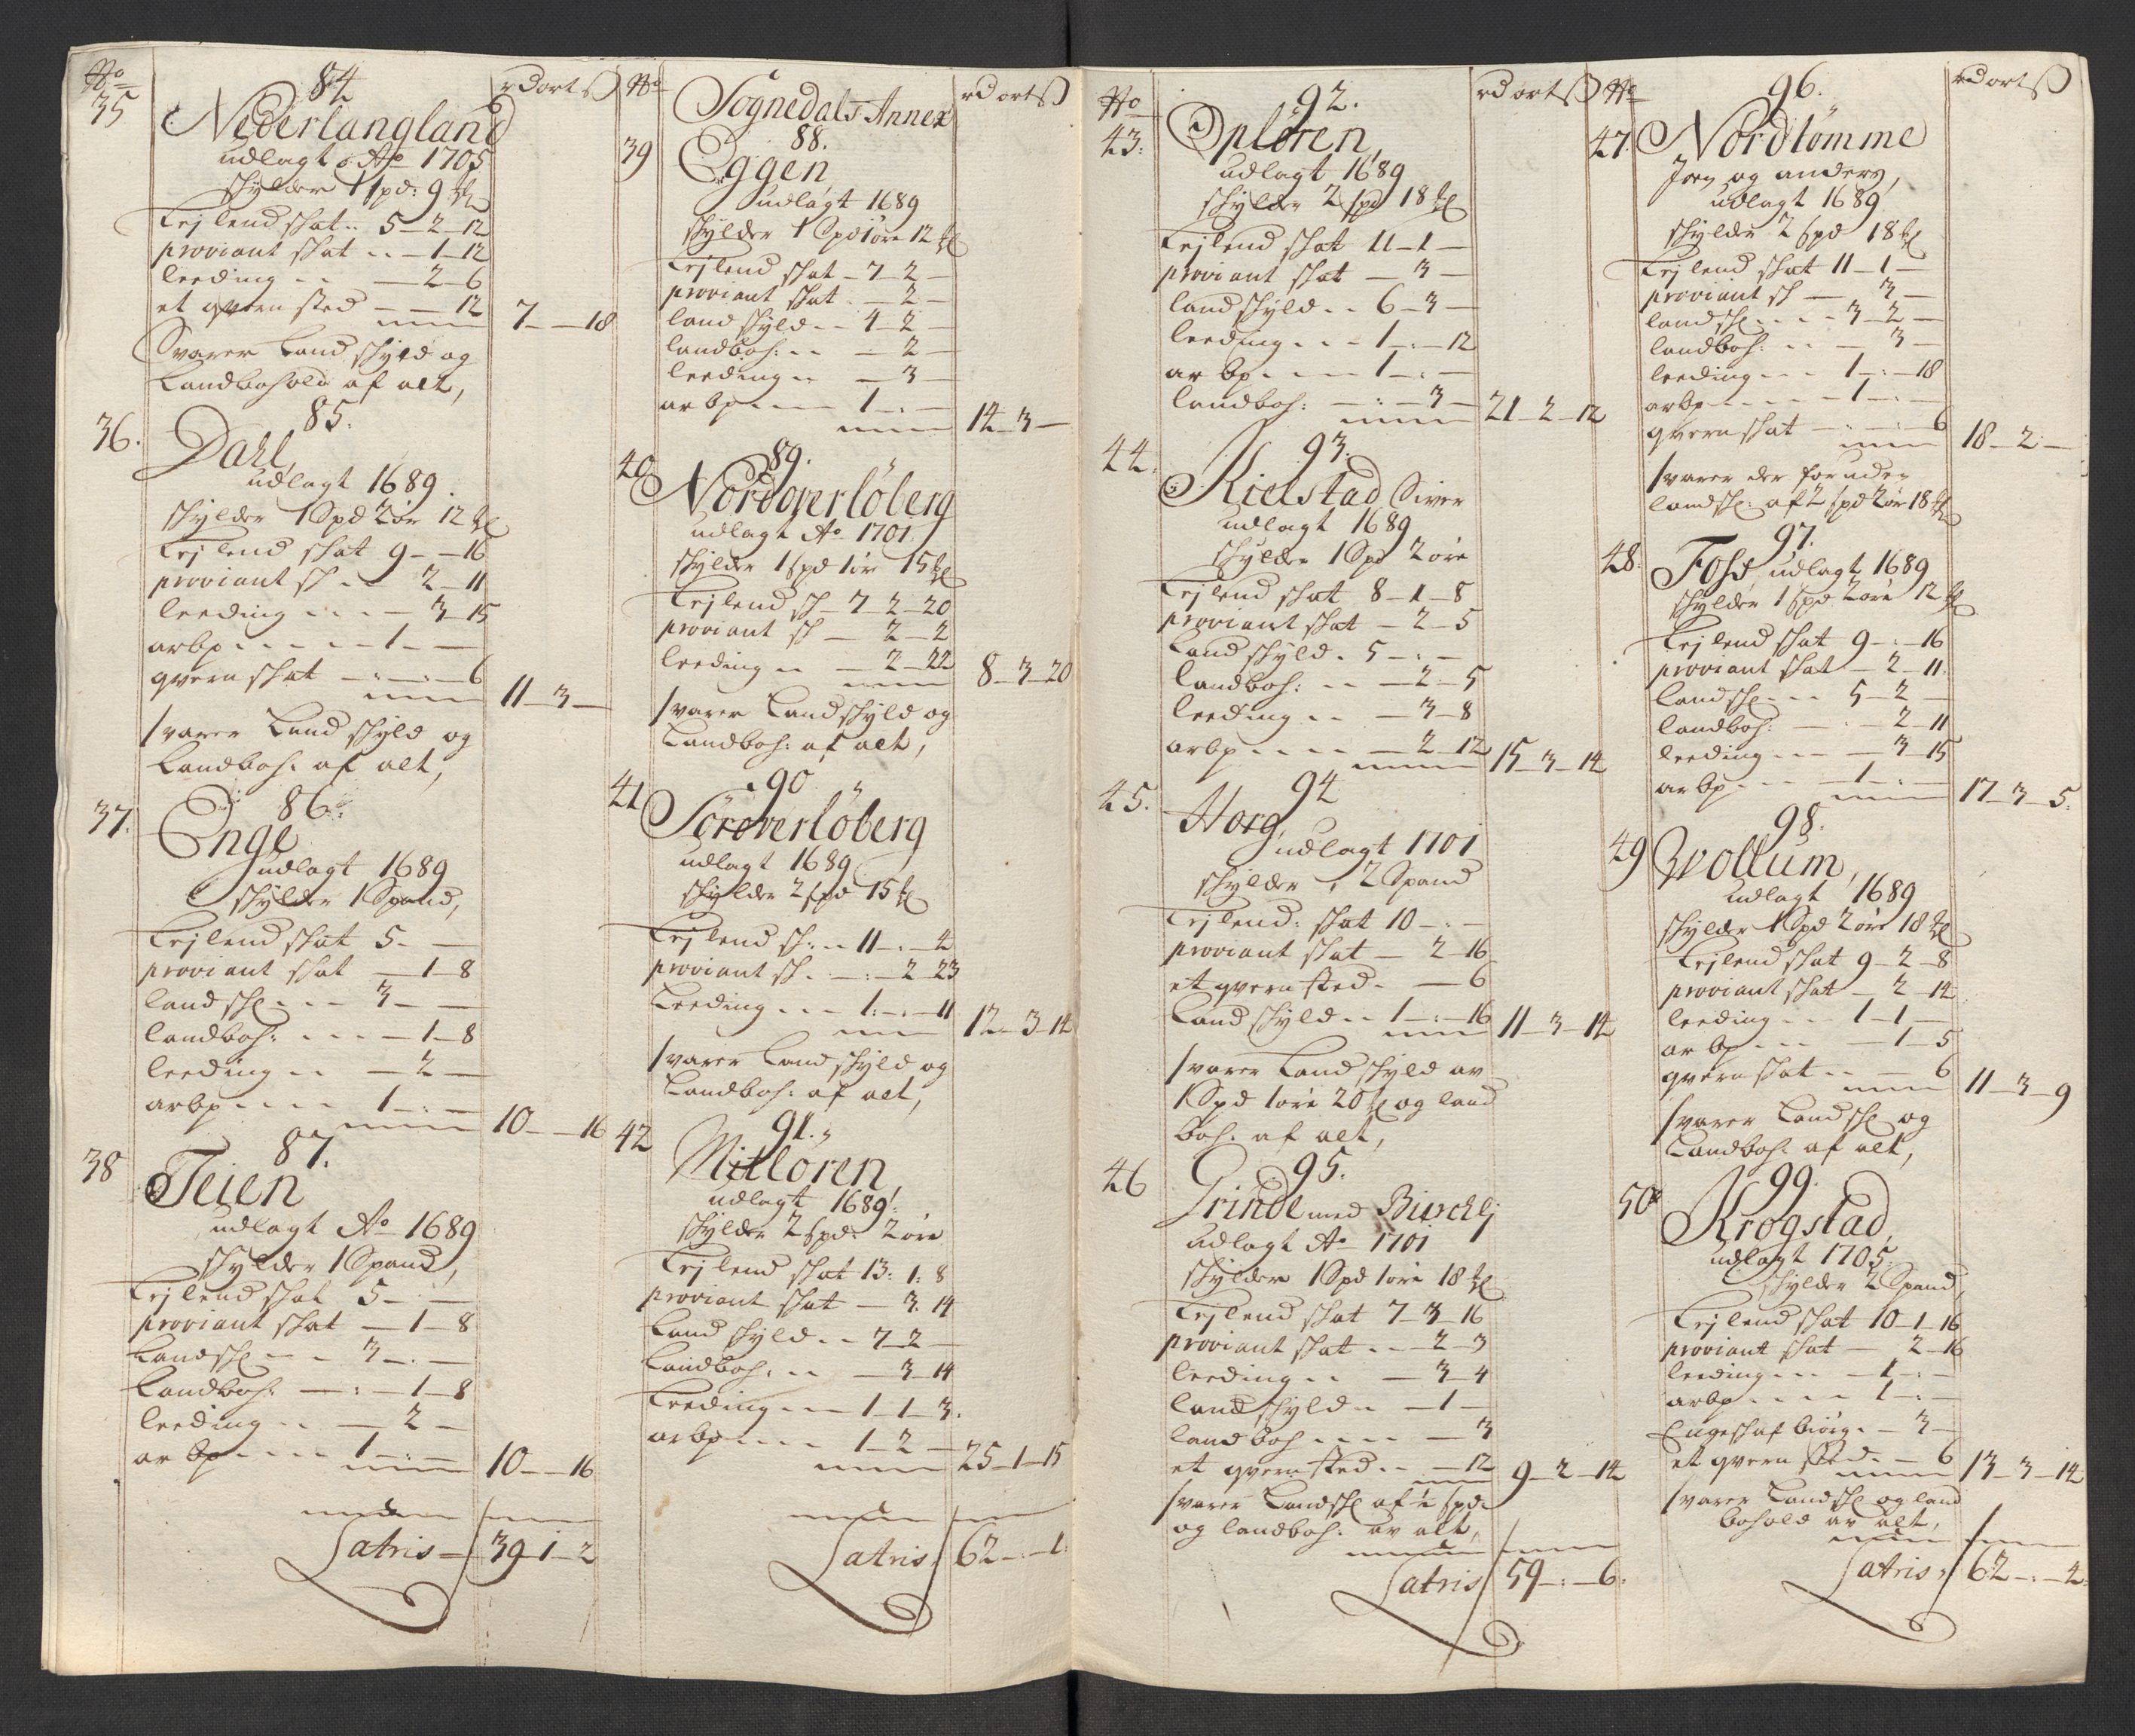 No
84
rd ort ß
35
Nederlangland
udlagt Ao 1705
skylder 1 spd: 9 mkl
Leylend skat .. 5 - 2 - 12
proviant skat .. - 1 - 12
leeding .. - 2 - 6
et qvern sted - - 12
7 - - 18
Svarer Landskyld og
Landbohold af alt,
85.
36.
Dahl,
udlagt 1689.
skylder 1 Spd 2 ør 12 mkl
Leylend skat 9 - - 16
proviant sk .. 2 - 11
leeding .. - 3 - 15
arbp .... 1 - -
qvern skat - . - . - 6
11 - 3 -
svarer Landskyld og
Landboh: af alt,
86.
37.
Enge
udlagt 1689
skylder 1 Spand,
Leylend skat 5 - -
proviant skat - 1 - 8
landskl - - - 3 - -
landboh: - - - - 1 - 8
leeding .. - 2 -
arbp .... 1 - . -
10 - - 16
87.
38
Teien
udlagt Ao 1689
skylder 1 Spand,
Leylend skat 5 - . -
proviant skat - 1 - 8
Landskl - - 3 - . -
Landboh: - . - 1 - 8
leeding .. - 2 -
arbp .... 1 - . -
10 - - 16
Latris - 39 - 1 - 2
No
Sognedals Annex
rd ort ß
88.
39
Eggen
udlagt 1689
skylder 1 Spd 1 øre 12 mkl
Leylend skat - 7 - 2 -
proviant skat - 2 -
landskyld - - 4 - 2 -
landboh: .. - 2 -
leeding .. - 3 -
arbp ... 1 - . -
14 - 3 -
89.
40
Nordoverløberg
udlagt Ao 1701
skylder 1 spd 1 ør 15 mkl
Leylend sk - 7 - 2 - 20
proviant sk - 2 - 2
leeding .. - 2 - 22
8 - 3 - 20
svarer Landskyld og
Landboh: af alt,
90
41
Søroverløberg
udlagt 1689
skylder 2 spd 15 mkl
Leylend sk: .. 11 - . - 4
proviant sk. - : - 2 - 23
Leeding ... 1 : - . - 11
12 - 3 - 14
svarer Landskyld og
Landboh: af alt,
91.
42
Mitloren,
udlagt 1689:
skylder 2 spd: 2 øre
Leylend skat 13: 1: 8
proviant skat - 3. 14
Landskyld .. 7 - 2 -
Landboh: .. - 3 - 14
Leeding ... 1 - 1 - 3.
arbp .... 1 - 2 -
25 - 1 - 15
Latris. 62 - : - 1.
No
92.
rd ort ß
43:
Opløren,
udlagt 1689
skylder 2 spd 18 mkl
Leylend skat 11 - 1 -
proviant skat - 3 -
landskyld .. 6 - 3 -
leeding ... 1 - : - 12
arbp .... 1 - . -
landboh: - . - 3 -
21 - 2 - 12
93.
44.
Kielstad Siver
udlagt 1689
skylder 1 Spd 2 øre
Leylend skat 8 - 1 - 8
proviant skat - 2 - 5
Landskyld . 5 - . -
landboh: .. - 2 - 5
leeding .. - 3 - 8
arbp .... - 2 - 12
15 - 3 - 14
94
45.
Horg,
udlagt 1701
skylder 2 Spand
Leylend: skat 10 - . -
proviant skat - 2 - 16
et qvern sted - - 6
Landskyld .. 1 - : - 16
11 - 3 - 14
svarer Landskyld av
1 Spd 1 øre 20 mkl og land
boh: af alt,
95.
46
Grinde med Birchlj
udlagt Ao 1701
skylder 1 Spd 1 øre 18 mkl
Leylend skat 7 - 3 - 16
proviant skat .. - 2 - 3
leeding .. - 3 - 4
landskyld .. - 1 -
landboh .... - 3
et qvern sted .. - 12
9 - 2 - 14
svarer Landskl af 1 spd
og landboh: av alt,
Latris 59 - : - 6.
No
96.
rd ort ß
47.
Nordtømme
Joen og anders,
udlagt 1689
skylder 2 spd 18 mkl
Leylend skat 11 - 1 -
proviant sk - 3 -
landskl .... 3 - 2 -
landboh: .. - 3 -
leeding ... 1 - : - 18
arbp .... 1 - . -
qvern skat - . - . - 6
18 - 2 : -
svarer der foruden
landskl: af 2 spd 2 ør 18 mkl
97.
48.
Foss, udlagt 1689
skylder 1 spd 2 øre 12 mkl
Leylend skat 9 - : - 16
proviant skat - 2 - 11.
Landskl ... 5 - 2 -
landboh: - : - 2 - 11
leeding ... - 3 - 15
arbp ... 1 - : -
17 - 3 - 5.
98.
49
Wollum,
udlagt 1689
skylder 1 Spd 2 øre 18 mkl
Leylend skat 9 - 2 - 8
proviant skat - 2 - 14
leeding ... 1 - 1 -
arbp ... - 1 - 5
qvern skat .. - 6
11 - 3 - 9
svarer Landskl og
Landboh: af alt,
99.
50
Krogstad,
udlagt 1705.
skylder 2 Spand,
Leylend skat 10 - 1 - 16
proviant skat - 2 - 16
leeding ... - 1 - : -
arbp .... 1 - : -
- 3 -
et qvern sted . - 6
13 - 3 - 14
svarer Landskl og land
bohold av alt,
Latris. 62 - . - 4.